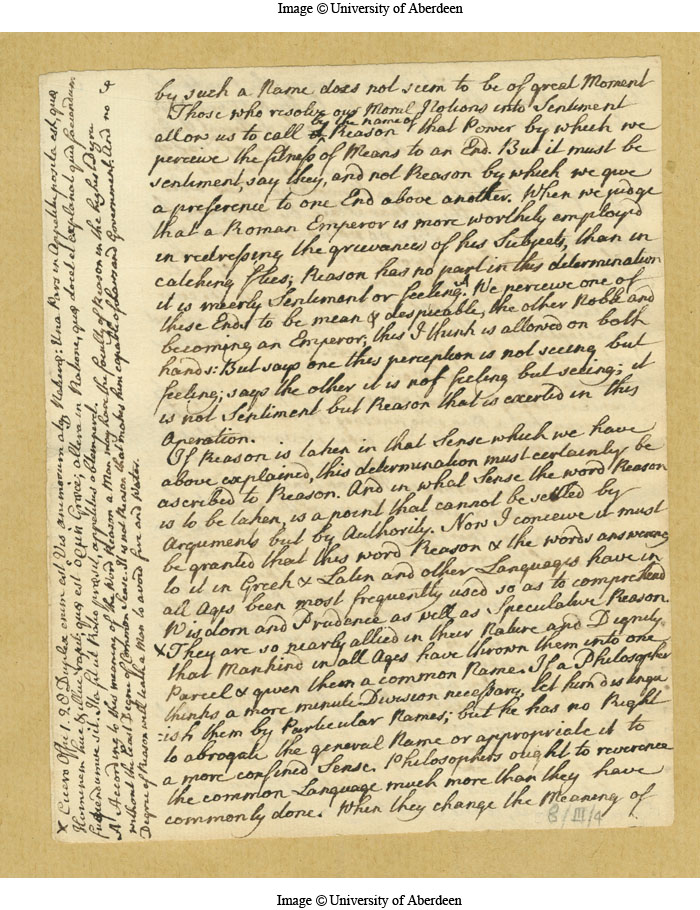 Image © University of Aberdeen
by such a Name does not seem to be of great Moment
Those who resolve our Moral Notions into Sentiment
allow us to call by the name of Reason that Power by which we
perceive the fitness of Means to an End. But it must be
sentiment, say they, and not Reason by which we give
a preference to one End above another. When we judge
that a Roman Emperor is more worthily employd
in redressing the grievances of his Subjects, than in
catching flies; Reason has no part in this determination
it is meerly Sentiment or feeling. We perceive one of
these Ends to be mean & despicable, the other Noble and
becoming an Emperor; this I think is allowed on both
hands: But says one this perception is not seeing but
feeling; says the other it is not feeling but seeing; it
is not Sentiment but Reason that is exerted in this
Operation.
If Reason is taken in that Sense which we have
above explained, this determination must certainly be
ascribed to Reason. And in what Sense the word Reason
is to be taken, is a point that cannot be settled by
Arguments but by Authority. Now I conceive it must
be granted that this word Reason & the words answering
to it in Greek & Latin and other Languages have in
all Ages been most frequently used so as to comprehend
Wisdom and Prudence as well as Speculative Reason.
X They are so nearly allied in their Nature and Dignity
that Mankind in all Ages have thrown them into one
Parcel & given them a common Name. If a Philosopher
thinks a more minute Division necessary, let him distingu
ish them by Particular Names; but he has no Right
to abrogate the general Name or appropriate it to
a more confined Sense. Philosophers ought to reverence
the common Language much more than they have
commonly done. When they change the Meaning of
X Cicero Offic 1, 28 Duplex enim est Vis animorum atq Naturæ: Una Pars in Appetitu posita est, quæ
Hominem huc & illuc rapit; quæ est ορμη Græcè; altera in Ratione, quæ docet et explanat quid faciendum
fugiendumve sit. Ita fit ut Ratio præsit, appetitus obtemperet.
N According to this meaning of the Word Reason a Man may have the faculty of Reason in the highest degree
without the least Degree of Common Sense. It is not Reason that makes him capable of Laws and Government. And no
Degree of Reason will teach a Man to avoid fire and Water.
8/III/9
Image © University of Aberdeen